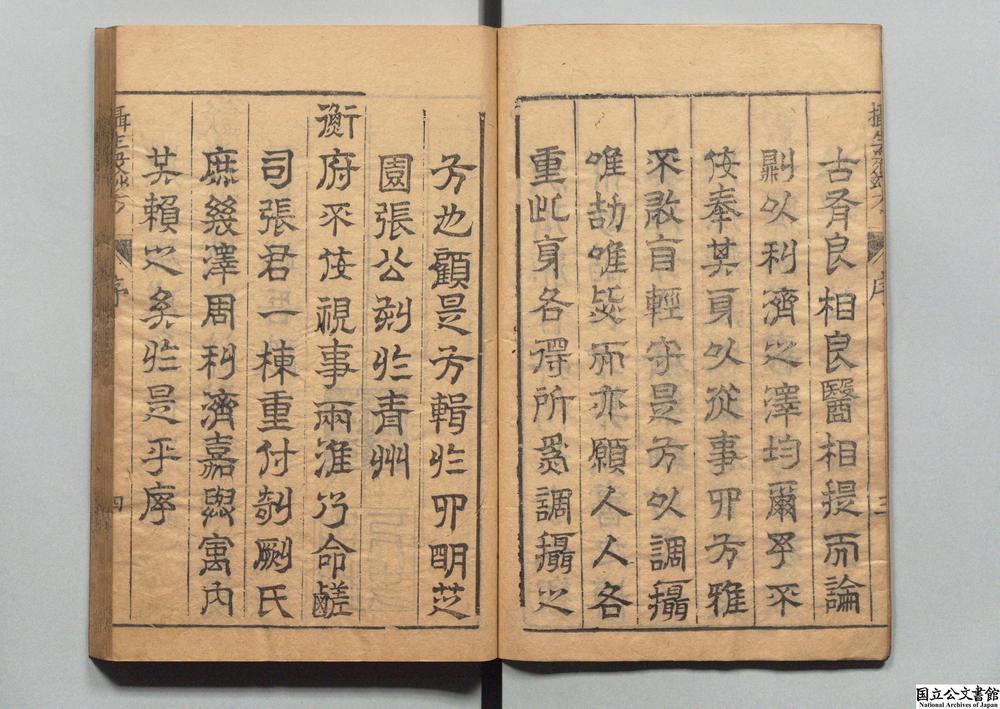 攝生眾妙方 序 三
古有良相良醫相提而論
則以利濟之澤均爾予不
佞奉其身以從事四方雅
不敢自輕守是方以調攝
唯劼唯毖而亦願人人各
重此身各得所為調攝之
方也顧是方輯於四明芝
園張公刻於青州
衡府不佞視事兩淮乃命鹺
司張君一棟重付剞劂氏
庶幾澤周利濟嘉與寓內
共賴之矣於是乎序
攝生眾妙方 序 四
国立公文書館
National Archives of Japan